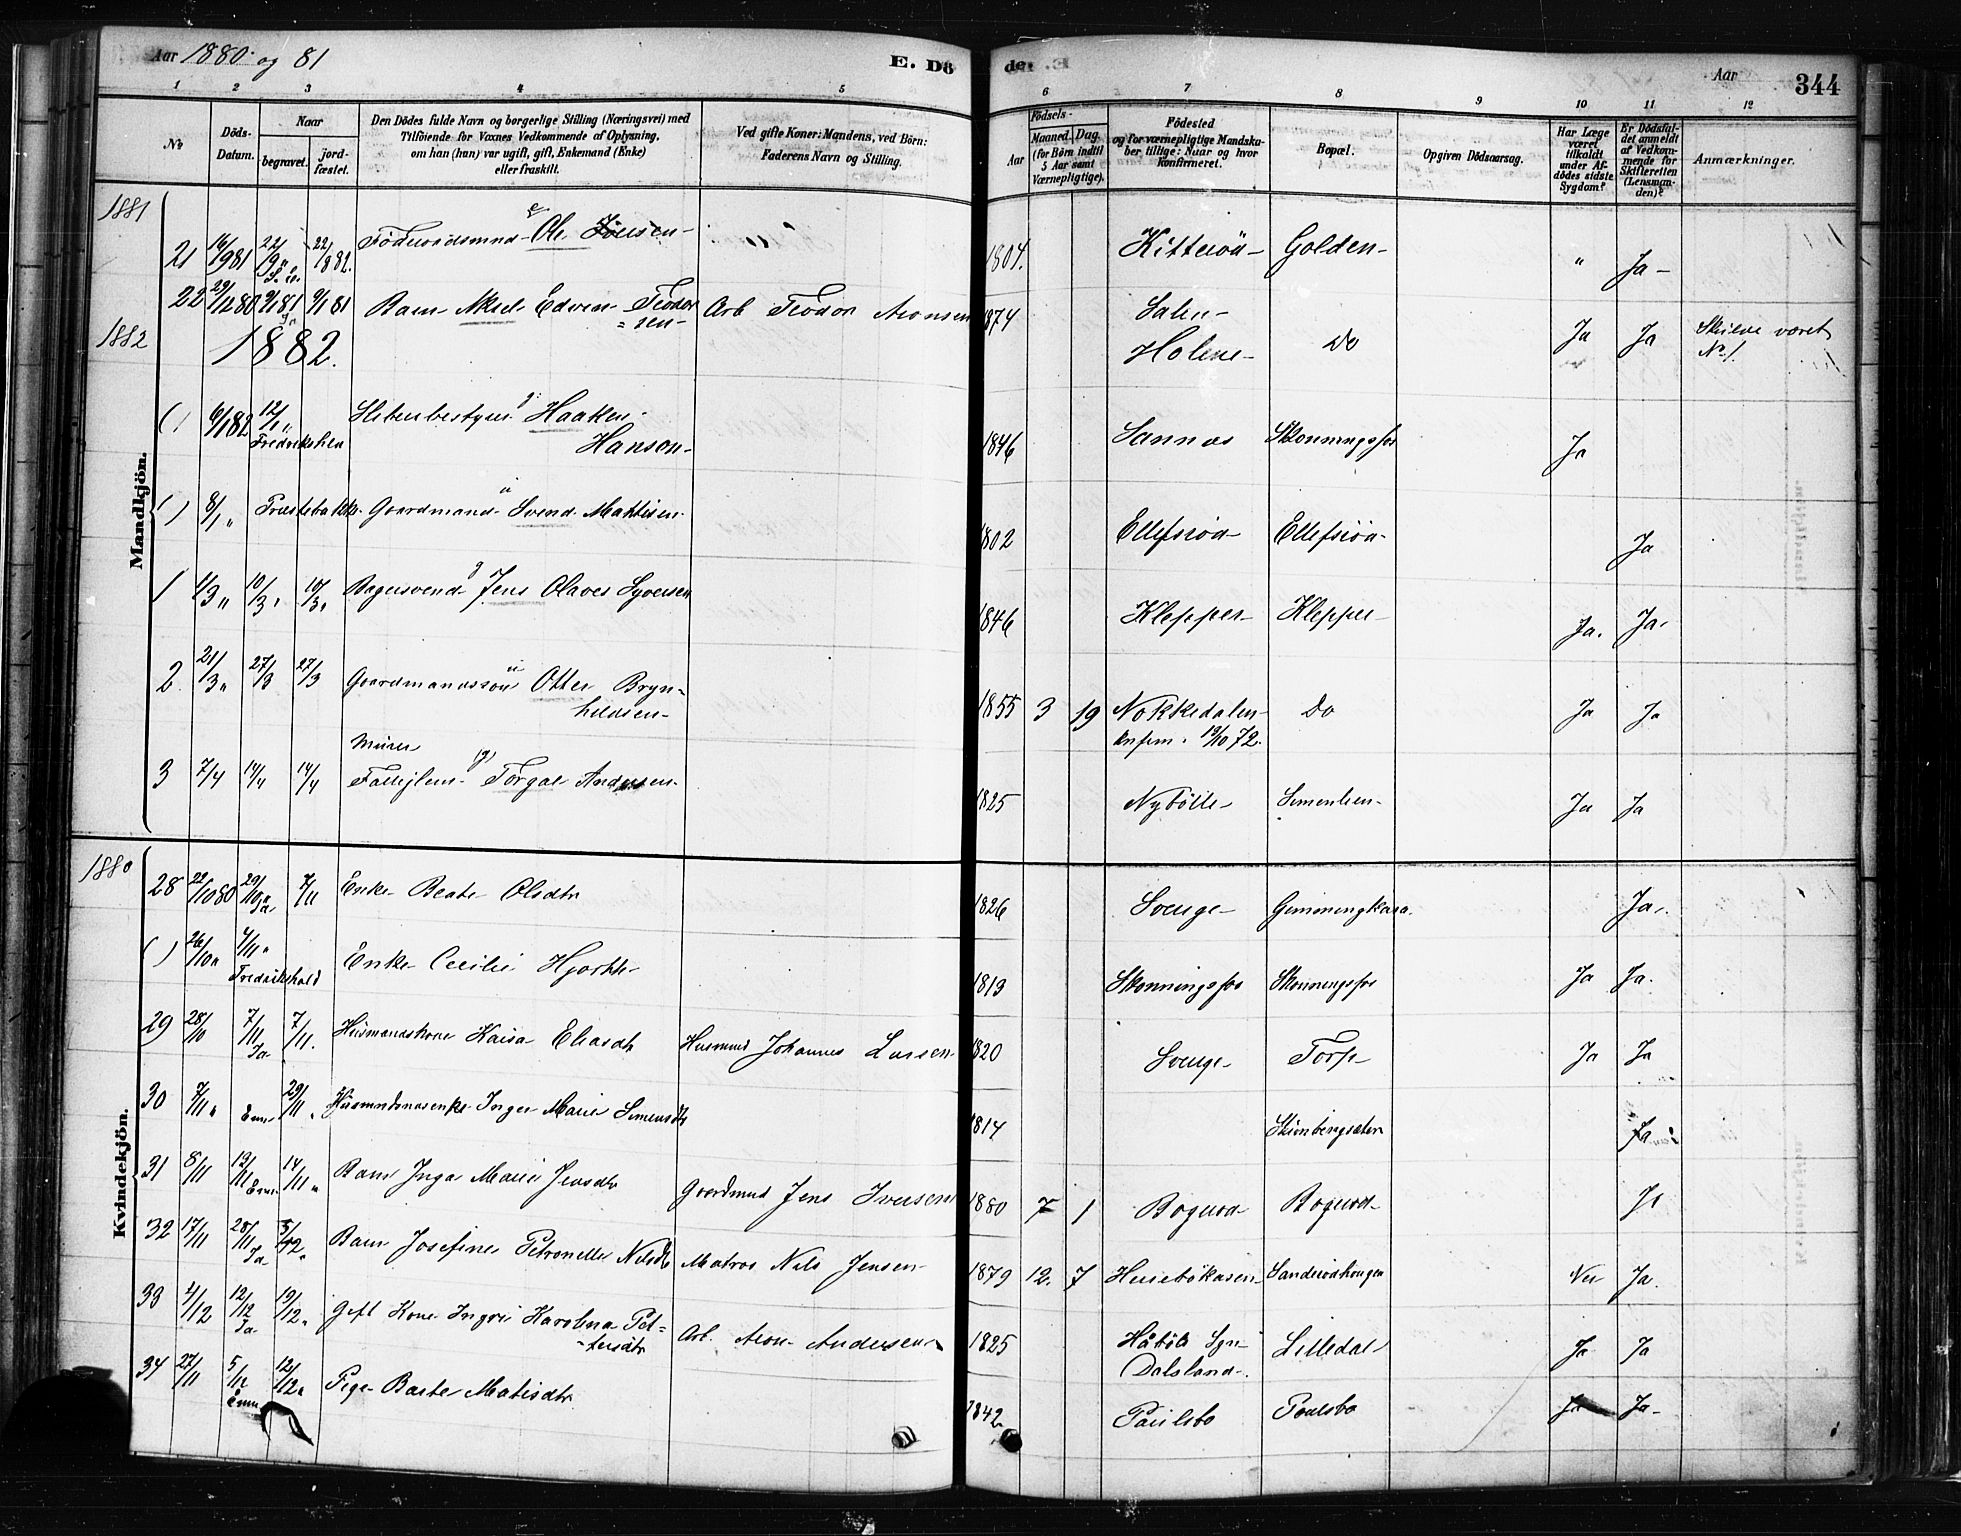 Aar 1880 og 81
E. Dö
de.
Aar
344
1 2 3 4 5 6 7 8 9 10 11 12
No
Döds-
Datum.
Naar
begravet.
jord-
fæstet.
Den Dödes fulde Navn og borgerlige Stilling (Næringsvei) med
Tilföiende for Voxnes Vedkommende af Oplysning,
om han (hun) var ugift, gift, Enkemand (Enke)
eller fraskilt.
Ved gifte Koner: Mandens, ved Börn:
Faderens Navn og Stilling.
Födsels-
Aar
Maaned.
Dag.
(for Börn indtil
5 Aar samt
Værnepligtige).
Födested
og for værnepligtige Mandska-
ber tillige: Naar og hvor
konfirmeret.
Bopæl.
Opgiven Dödsaarsag.
Har Læge
været
tilkaldt
under Af-
dödes sidste
Sygdom?
Er Dödsfal-
det anmeldt
af Vedkom-
mende for
Skifteretten
(Lensman-
den)?
Anmærkninger.
Mandkjön.
1881
21 16/9 81 22/9 " 22/8 82. Föderaadsmnd e Ole 1804. Golden " Ja
22 29/12 80 9/1 81 9/1 81 Barn Aksel Edven Teodor
=sen- Arb Teodor Aronsen 1874 Holene Do Ja Ja
No 1.
1882
1882.
( ) 6/1 82 12/1 " Fredrikshld g. Haaken
Hansen 1846 Sannæs Skonningsfos Ja
( ) 8/1 " Præstebakke Gaardmand u Svend Mathisen 1802 Ellefsröd Ellefsröd Ja
1 4/3 " 10/3 " 10/3 " Bagersvend g Jens Olaves Syversen 1846 Klepper Klepper Ja. Ja.
2 21/3 " 27/3 27/3 Gaardmandssön u Otter Bryn-
hildsen 1855 3 19 Nokkedalen Do Ja Ja
19/10 72.
Murer
3 7/4 14/4 14/4 g Torgal Andersen 1825 Nybölle Ja Ja
Kvindekjön.
1880
28 22/10 80 29/10 " Ja 7/11 Enke Beate Olsdtr 1826 Svenge Ja.
( ) 26/10 " 4/11 " Fredrikshald Enke Cecilie Hjorth 1819 Skonningsfos Skonningsfos Ja Ja.
29 28/10 7/11 Ja 7/11. Husmandskone Kaisa Eliasdtr Husmnd Johannes Larsen 1820 Svenge Torp Ja Ja
30 7/11 " 29/11 " Husmandsenke Inger Marie Simensdtr 1814 Ja
31 8/11 12/11 14/11 " Barn Inga Marie Jensdtr Gaardmnd Jens Iversen 1880 7 1 Bogerød Bogerød Ja
32 17/11 28/11 Ja 5/12 " Barn Josefine Petronelle Nilsdtr Matros Nils Jensen 1879 12. 7 Husebökasen Sanderödhougen Nei Ja.
33 4/12 12/12 Ja 19/12 " Gift Kone Ingri Karolina Pet=
=tersdtr Arb. Aron Andersen 1825 Håböls Sgn
Dalsland Lilledal Ja Ja
34 27/11 5/12 12/12 " Pige Barte Matisdtr 1842 Paulsbo Poulsbo Ja Ja